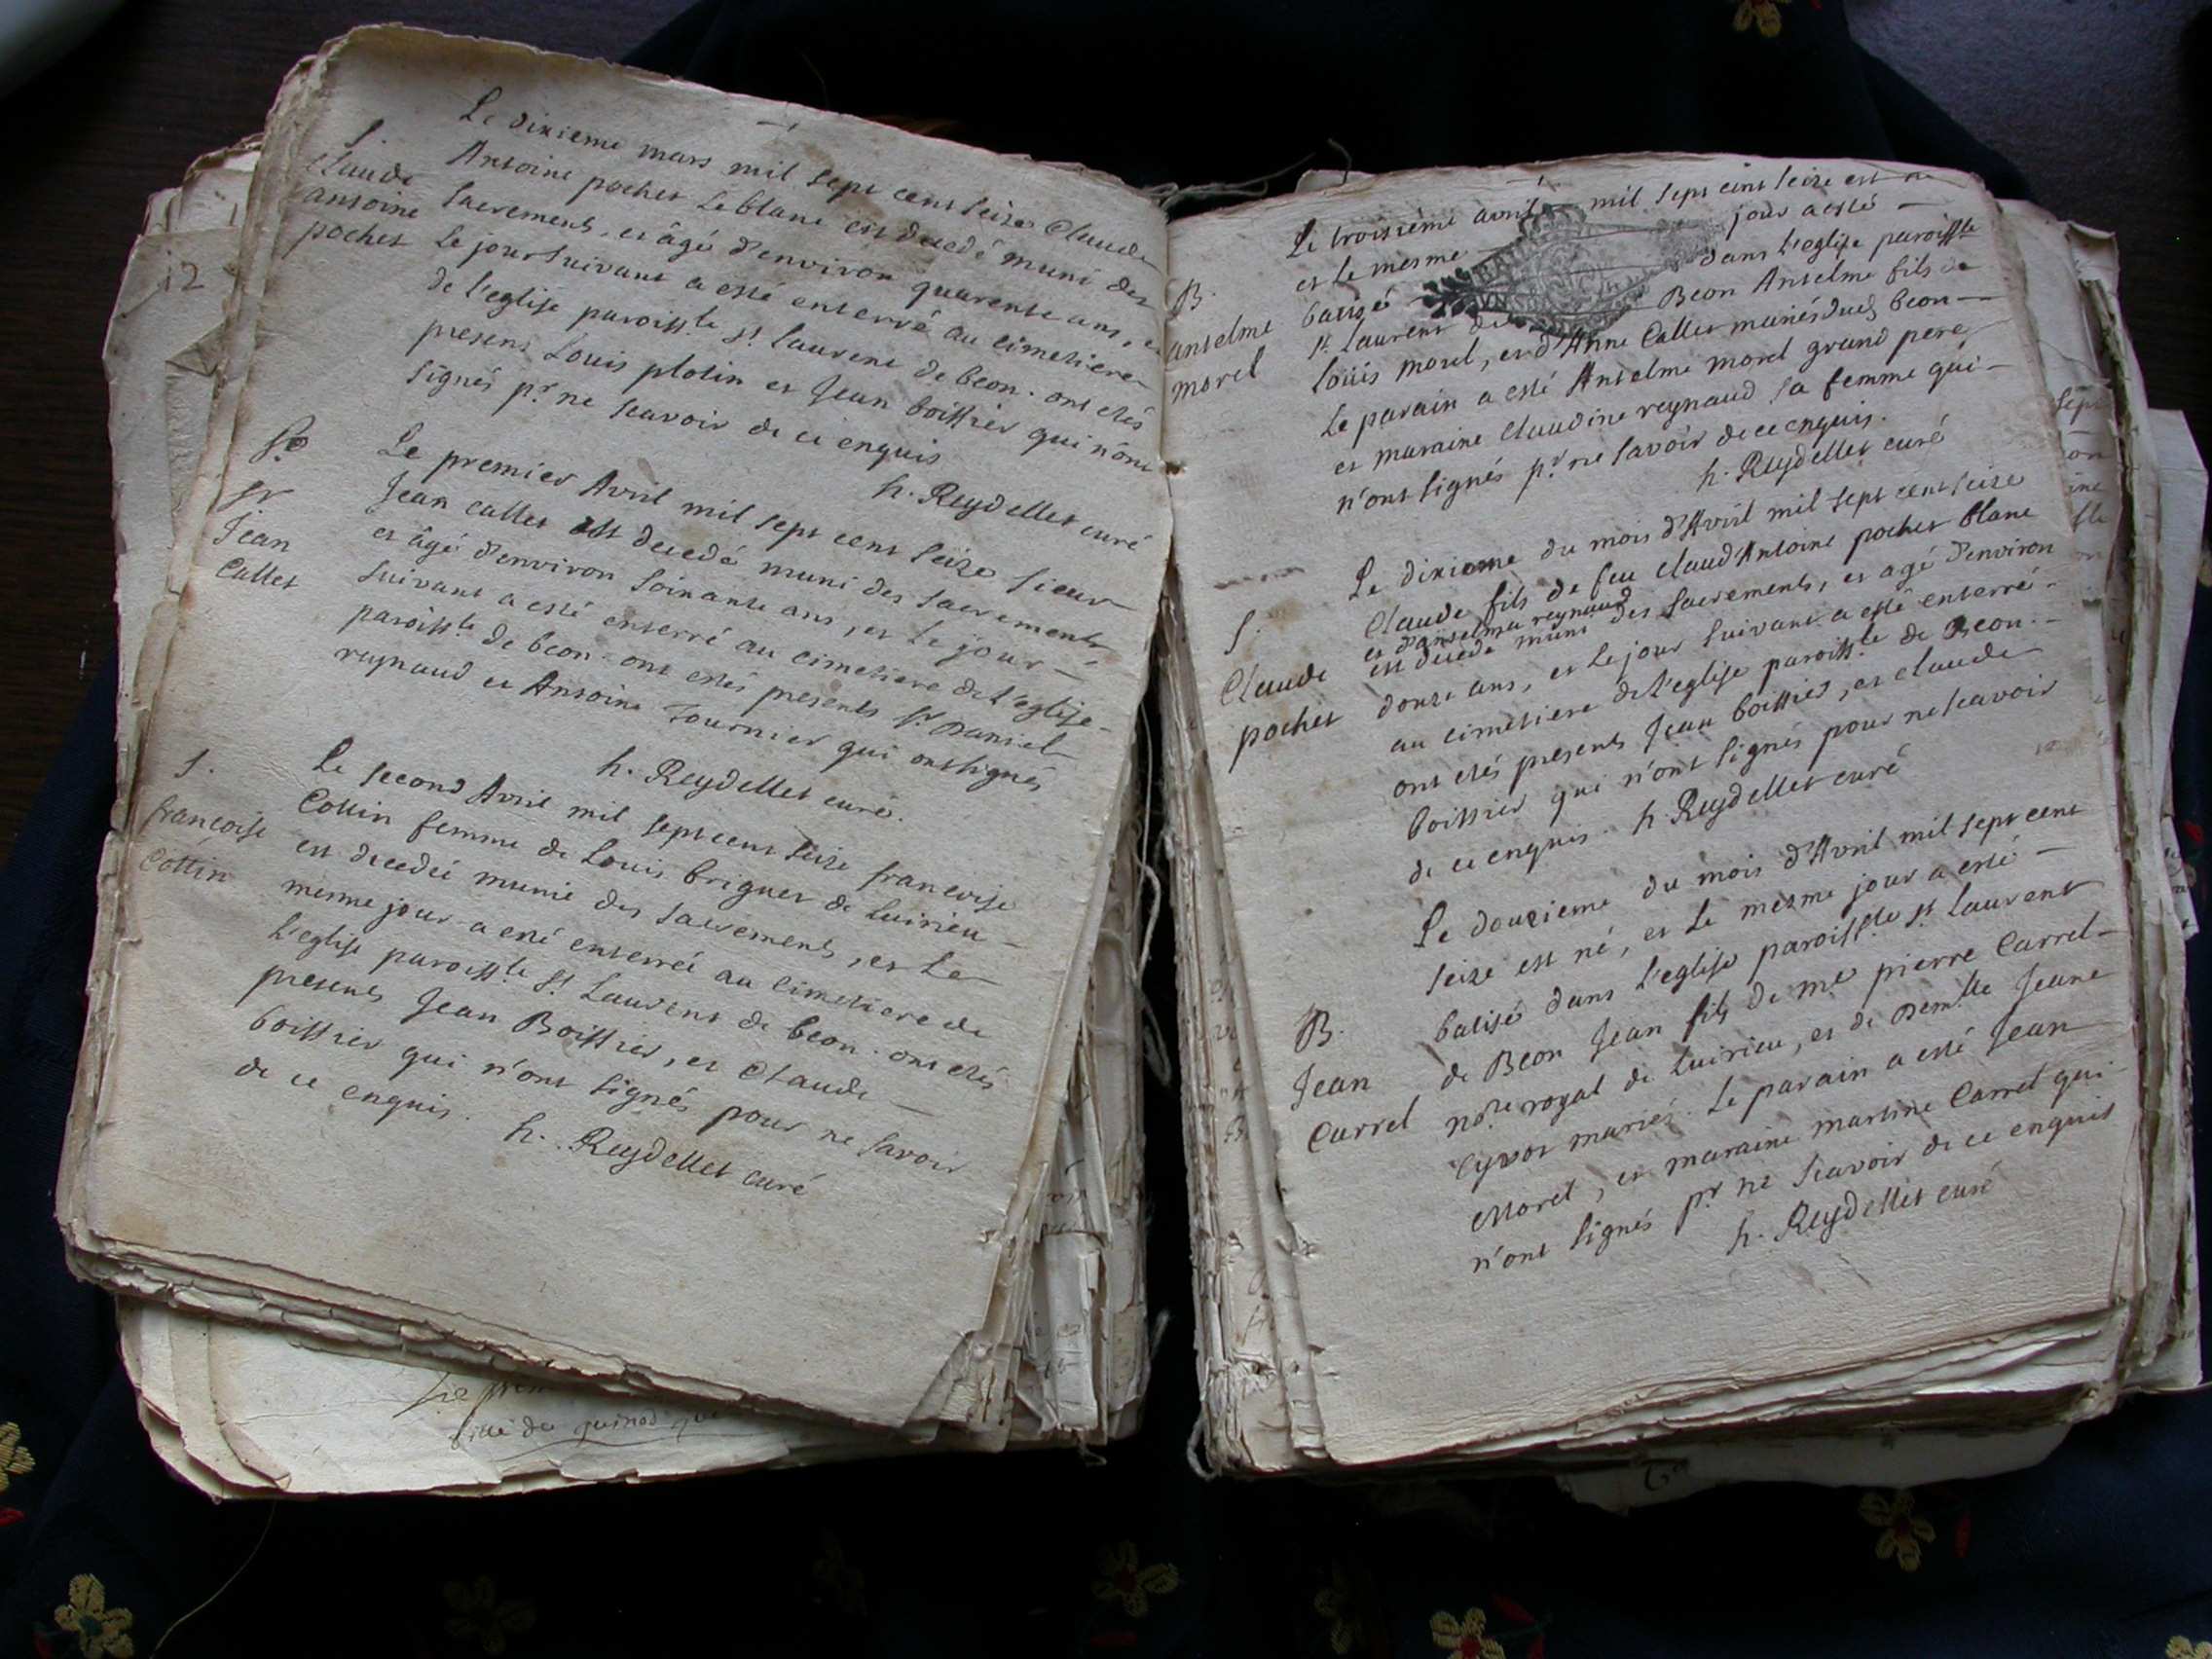 Le dixieme mars mil sept cent seize Claude
Antoine pochet Leblanc est decedé muni des
sacrements, et âgé d'environ quarente ans, et
Le jour suivant a esté enterré au cimetiere
de l'eglise paroissle st Laurent de beon. ont etés
presens Louis plotin et Jean boissier qui n'ont
signés pr ne scavoir de ce enquis
h. Reydellet curé
S.
Claude
antoine
pochet
Le premier Avril mil sept cent seize sieur
Jean callet est decedé muni des sacrements,
et âgé d'environ soixante ans, et Le jour
suivant a esté enterré au cimetiere de l'eglise
paroissle de beon. ont estés presents sr Daniel
reynaud et Antoine Tournier qui ont signés
h. Reydellet curé.
sr
Jean
Callet
Le second Avril mil sept cent seize francoise
Collin femme de Louis briguet de Luirieu
est decedée munie des sacrements, et Le
mesme jour a esté enterrée au cimetiere de
l'eglise paroissle st Laurent de beon. ont etés
presents Jean Boissier, et Claude
boissier qui n'ont signés pour ne savoir
de ce enquis. h. Reydellet curé
S.
francoise
Collin
12
Le troisieme avril mil sept cent seize est né
et le mesme jour a esté
batisé dans l'eglise paroissle
st Laurent de Beon Anselme fils de
Louis morel, et d'Anne Callet mariés dud beon
Le parain a esté Anselme morel grand pere,
et maraine Claudine reynaud sa femme qui
n'ont signés pr ne savoir de ce enquis.
h. Reydellet curé
B.
anselme
morel
Le dixieme du mois d'Avril mil sept cent seize
Claude fils de feu Claud'Antoine pochet blanc
et d'anselma reynaud
est decedé muni des sacrements, et agé d'environ
douze ans, et Le jour suivant a esté enterré
au cimetiere de l'eglise paroissle de Beon.
ont etés presents Jean boissier, et claude
boissier qui n'ont signés pour ne scavoir
de ce enquis. h. Reydellet curé
S.
Claude
pochet
Le douzieme du mois d'Avril mil sept cent
seize est né, et Le mesme jour a esté
batisé dans l'eglise paroissle st Laurent
de Beon Jean fils de me pierre Carrel
nore royal de Luirieu, et de Demlle Jeane
Cyvot mariés. Le parain a esté Jean
Morel, et maraine martine Carrel qui
n'ont signés pr ne scavoir de ce enquis
h. Reydellet curé
B.
Jean
Carrel